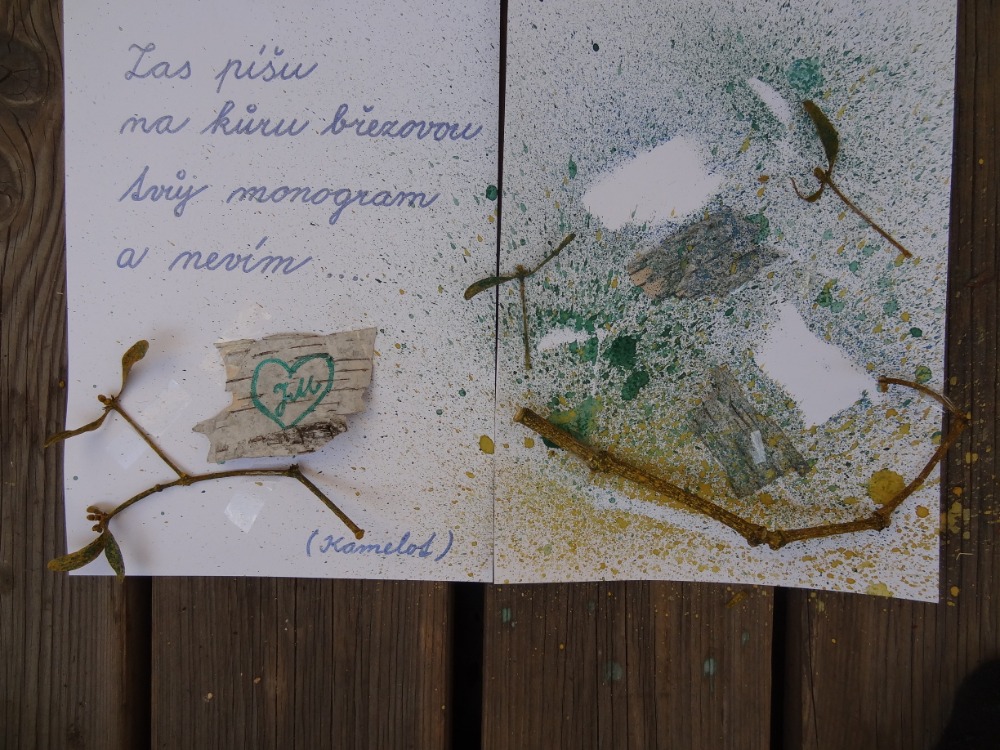 Zas píšu
na kůru březovou
tvůj monogram
a nevím ...
JM
(Kamelot)